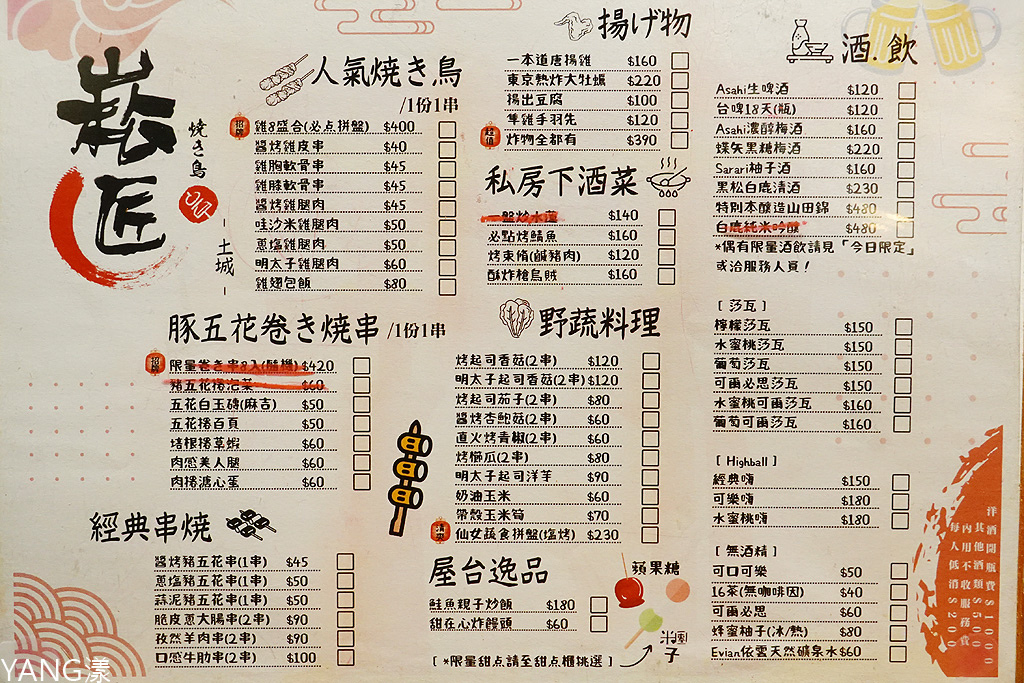 崧匠
焼き鳥
土城
人氣焼き鳥
/1份1串
招牌
雞8盛合(必点拼盤) $400
醬烤雞皮串 $40
雞胸軟骨串 $45
雞膝軟骨串 $45
醬烤雞腿肉 $45
哇沙米雞腿肉 $50
蔥塩雞腿肉 $50
明太子雞腿肉 $60
雞翅包飯 $80
豚五花卷き焼串 /1份1串
招牌
限量卷き串8入(隨機) $420
豬五花捲泡菜 $60
五花白玉磚(麻吉) $50
五花捲百頁 $50
培根捲草蝦 $60
肉感美人腿 $60
肉捲溏心蛋 $60
經典串燒
醬烤豬五花串(1串) $45
蔥塩豬五花串(1串) $50
蒜泥豬五花串(1串) $50
脆皮蔥大腸串(2串) $90
孜然羊肉串(2串) $90
口感牛肋串(2串) $100
揚げ物
一本道唐揚雞 $160
東京熱炸大牡蠣 $220
揚出豆腐 $100
隼雞手羽先 $120
超值
炸物全都有 $390
私房下酒菜
一盤炒水蓮 $140
必點烤鯖魚 $160
烤束脩(鹹豬肉) $120
酥炸槍烏賊 $160
野蔬料理
烤起司香菇(2串) $120
明太子起司香菇(2串) $120
烤起司茄子(2串) $80
醬烤杏鮑菇(2串) $60
直火烤青椒(2串) $60
烤櫛瓜(2串) $80
明太子起司洋芋 $90
奶油玉米 $60
帶殼玉米筍 $70
仙女蔬食拼盤(塩烤) $230
屋台逸品
鮭魚親子炒飯 $180
甜在心炸饅頭 $60
蘋果糖
糰子
[ *限量甜点請至甜点櫃挑選 ]
酒.飲
Asahi生啤酒 $120
台啤18天(瓶) $120
Asahi濃醇梅酒 $160
蝶矢黑糖梅酒 $220
Sarari柚子酒 $160
黑松白鹿清酒 $230
特別本釀造山田錦 $480
白鹿純米吟釀 $480
*偶有限量酒飲請見「今日限定」
或洽服務人員!
[ 莎瓦 ]
檸檬莎瓦 $150
水蜜桃莎瓦 $150
葡萄莎瓦 $150
可爾必思莎瓦 $150
水蜜桃可爾莎瓦 $160
葡萄可爾莎瓦 $160
[ Highball ]
經典嗨 $150
可樂嗨 $180
水蜜桃嗨 $180
[ 無酒精 ]
可口可樂 $50
16茶(無咖啡因) $40
可爾必思 $60
蜂蜜柚子(冰/熱) $80
Evian依雲天然礦泉水 $60
洋酒開瓶費$1000
其他酒類$500
內用不收服務費
每人低消$200
YANG漾